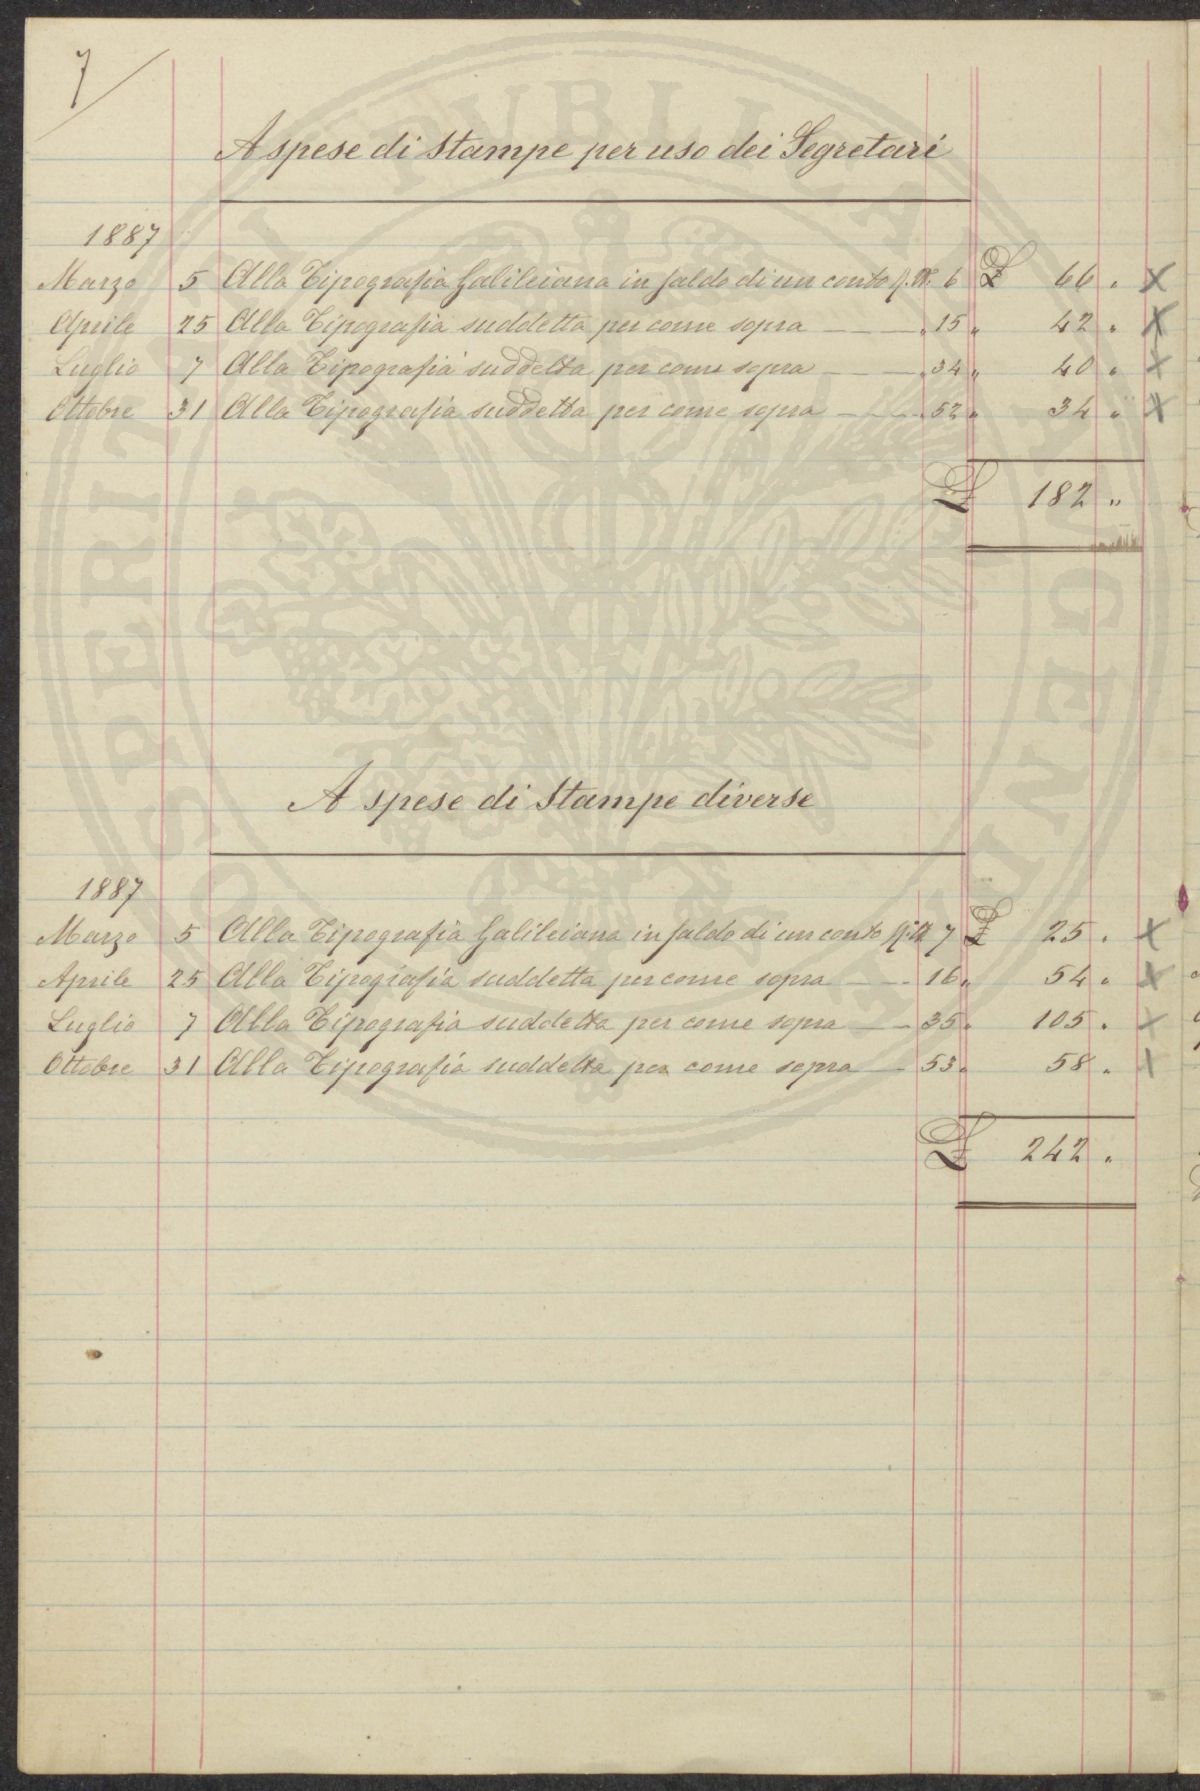 7
A spese di Stampe per uso dei Segretari
1887
Marzo 5 Alla Tipografia Galileiana in saldo di un conto 6 £ 66 „ X
Aprile 25 Alla Tipografia suddetta per come sopra — — „ 15 „ 42 „ X
Luglio 7 Alla Tipografia suddetta per come sopra — — „ 34 „ 40 „ X
Ottobre 31 Alla Tipografia suddetta per come sopra — — „ 52 „ 34 „ X
£ 182 „
A spese di Stampe diverse
1887
Marzo 5 Alla Tipografia Galileiana in saldo di un conto 7 £ 25 „ X
Aprile 25 Alla Tipografia suddetta per come sopra — — 16 „ 54 „ X
Luglio 7 Alla Tipografia suddetta per come sopra — — 35 „ 105 „ X
Ottobre 31 Alla Tipografia suddetta per come sopra — 53 „ 58 „ X
£ 242 „